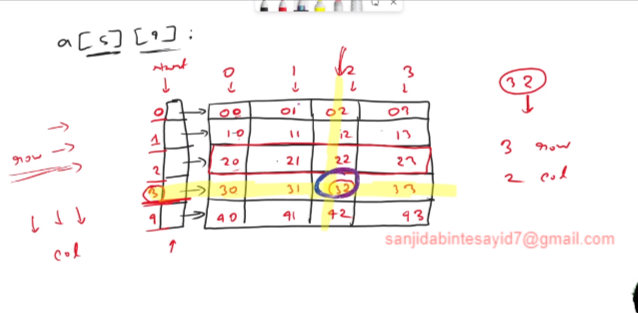 a[5][4]:
start 0 1 2 3
0 00 01 02 03
1 10 11 12 13
2 20 21 22 23
3 30 31 32 33
4 40 41 42 43
row
col
32
3 row
2 col
sanjidabintesayid7@gmail.com